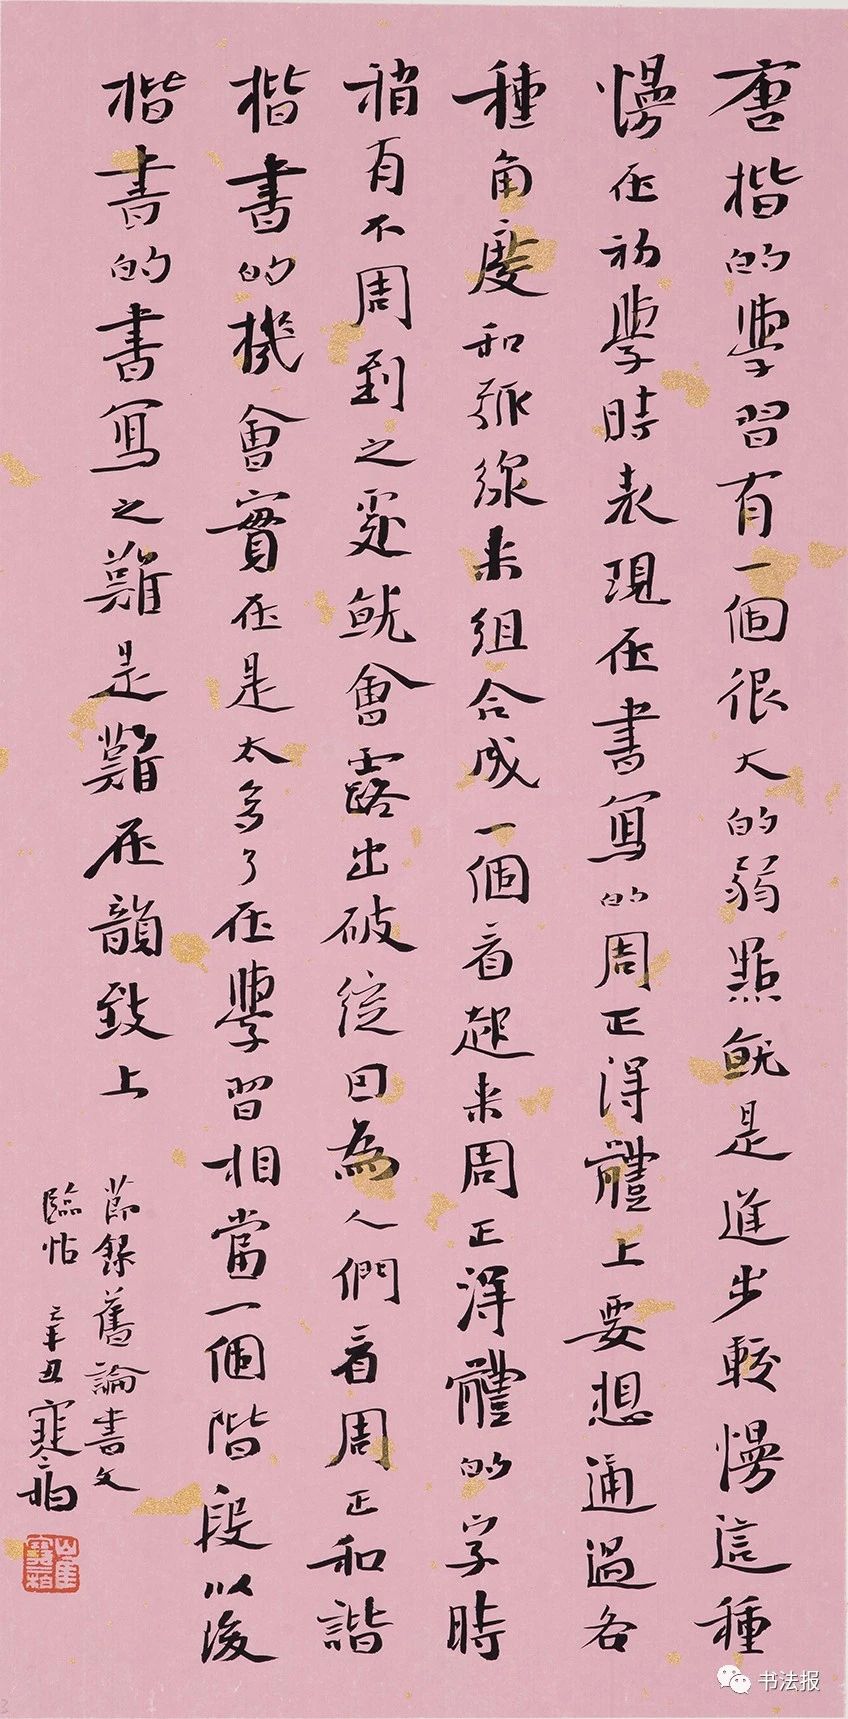 唐楷的學習有一個很大的弱點就是進步較慢這種
慢在初學時表現在書寫的周正得體上要想通過各
種角度和弧線來組合成一個看起來周正得體的字時
稍有不周到之處就會露出破綻因為人們看周正和諧
楷書的機會實在是太多了在學習相當一個階段以後
楷書的書寫之難是難在韻致上
節錄舊論書文
臨帖 辛丑 寒柏
崔寒柏
书法报